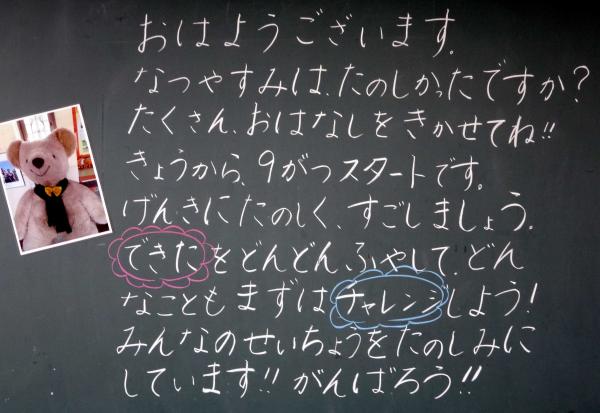 おはようございます。
なつやすみは、たのしかったですか？
たくさん、おはなしをきかせてね!!
きょうから、9がつスタートです。
げんきにたのしく、すごしましょう。
できたをどんどんふやして、どん
なこともまずはチャレンジしよう!
みんなのせいちょうをたのしみに
しています!!がんばろう!!